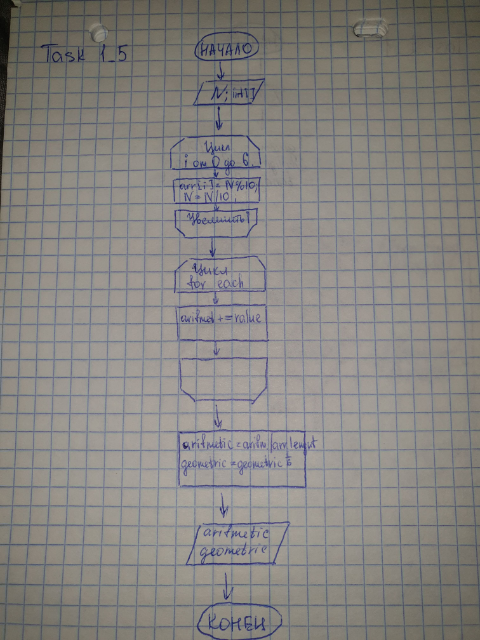 Task 1_5
НАЧАЛО
N; int
Цикл
i от 0 до 6,
arr[i]=N%10;
N=N/10;
Увеличить i
Цикл
for each
aritmet+=value
aritmetic=aritm/arr/lenght
geometric=geometric
aritmetic
geometric
КОНЕЦ